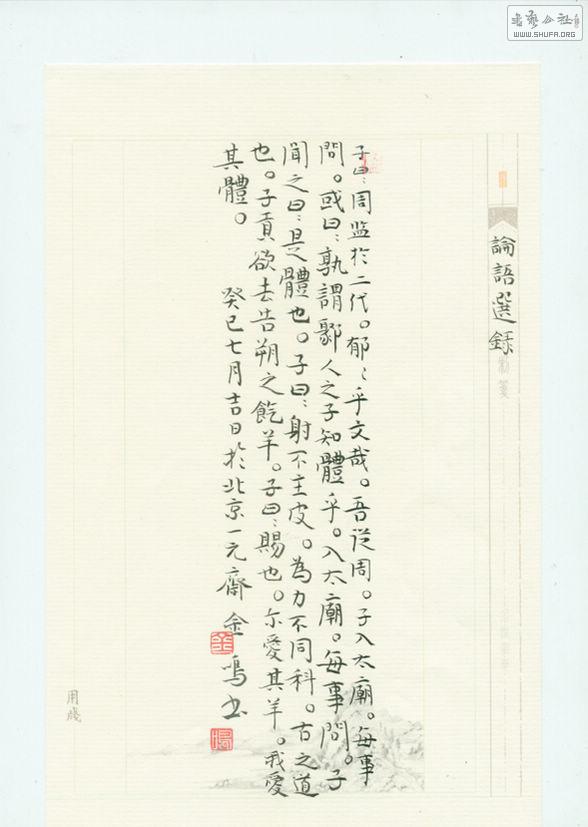 論語選錄
子曰：周监於二代。郁〻乎文哉。吾從周。子入太廟。每事
問。或曰：孰謂鄹人之子知體乎。入太廟。每事問。子
聞之曰：是體也。子曰：射不主皮。為力不同科。古之道
也。子貢欲去告朔之餼羊。子曰：賜也。尓愛其羊。我愛
其體。
癸巳七月吉日於北京一元齋 金鳴书
用牋
書艺公社
www.SHUFA.ORG